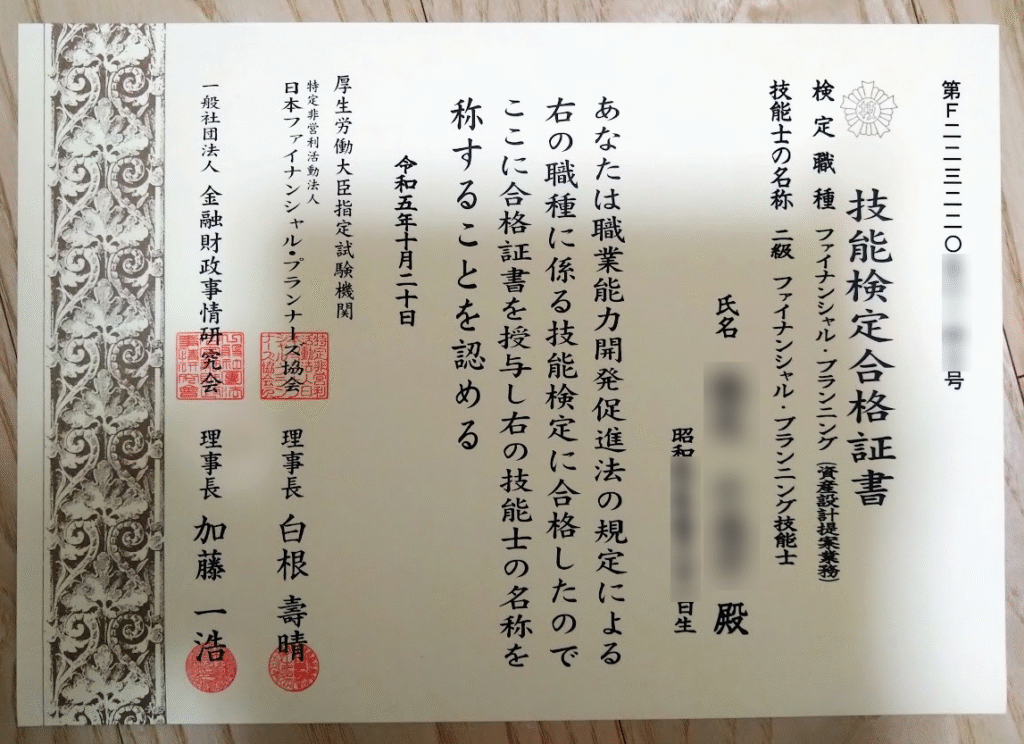 第F二二三二一〇
号
技能検定合格証書
検定職種 ファイナンシャル・プランニング（資産設計提案業務）
技能士の名称 二級 ファイナンシャル・プランニング技能士
氏名
殿
昭和
日生
あなたは職業能力開発促進法の規定による
右の職種に係る技能検定に合格したので
ここに合格証書を授与し右の技能士の名称を
称することを認める
令和五年十月二十日
厚生労働大臣指定試験機関
特定非営利活動法人
日本ファイナンシャル・プランナーズ協会 理事長 白根 壽晴
一般社団法人 金融財政事情研究会 理事長 加藤 一浩